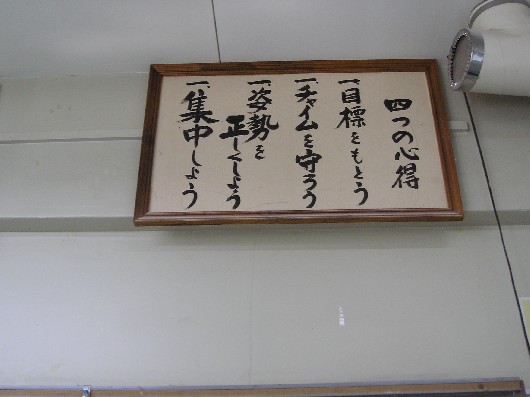 四つの心得
一、目標をもとう
一、チャイムを守ろう
一、姿勢を
正しくしよう
一、集中しよう